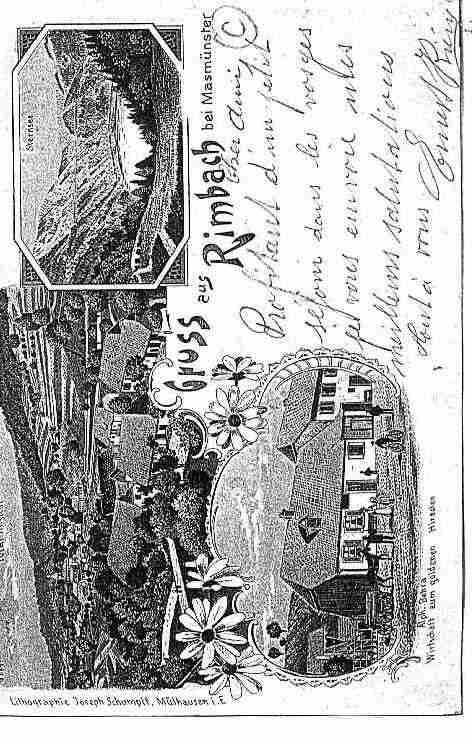 Sternsee
Gruss aus Rimbach bei Masmünster
Cher Ami
Profitant d'un petit
séjour dans les Vosges
je vous envoie mes
meilleurs salutations
Tout à vous Ernest
Alph. Behra
Wirtschaft zum goldenen Hirschen
Lithographie Joseph Schumpff, Mülhausen i. E